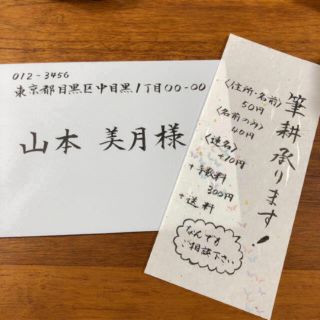 012-3456
東京都目黒区中目黒1丁目00-00
山本 美月様
筆耕承ります!
〈住所・名前〉
50円
〈名前のみ〉
40円
〈連名〉
+10円
+手数料
300円
+送料
なんでも
ご相談下さい